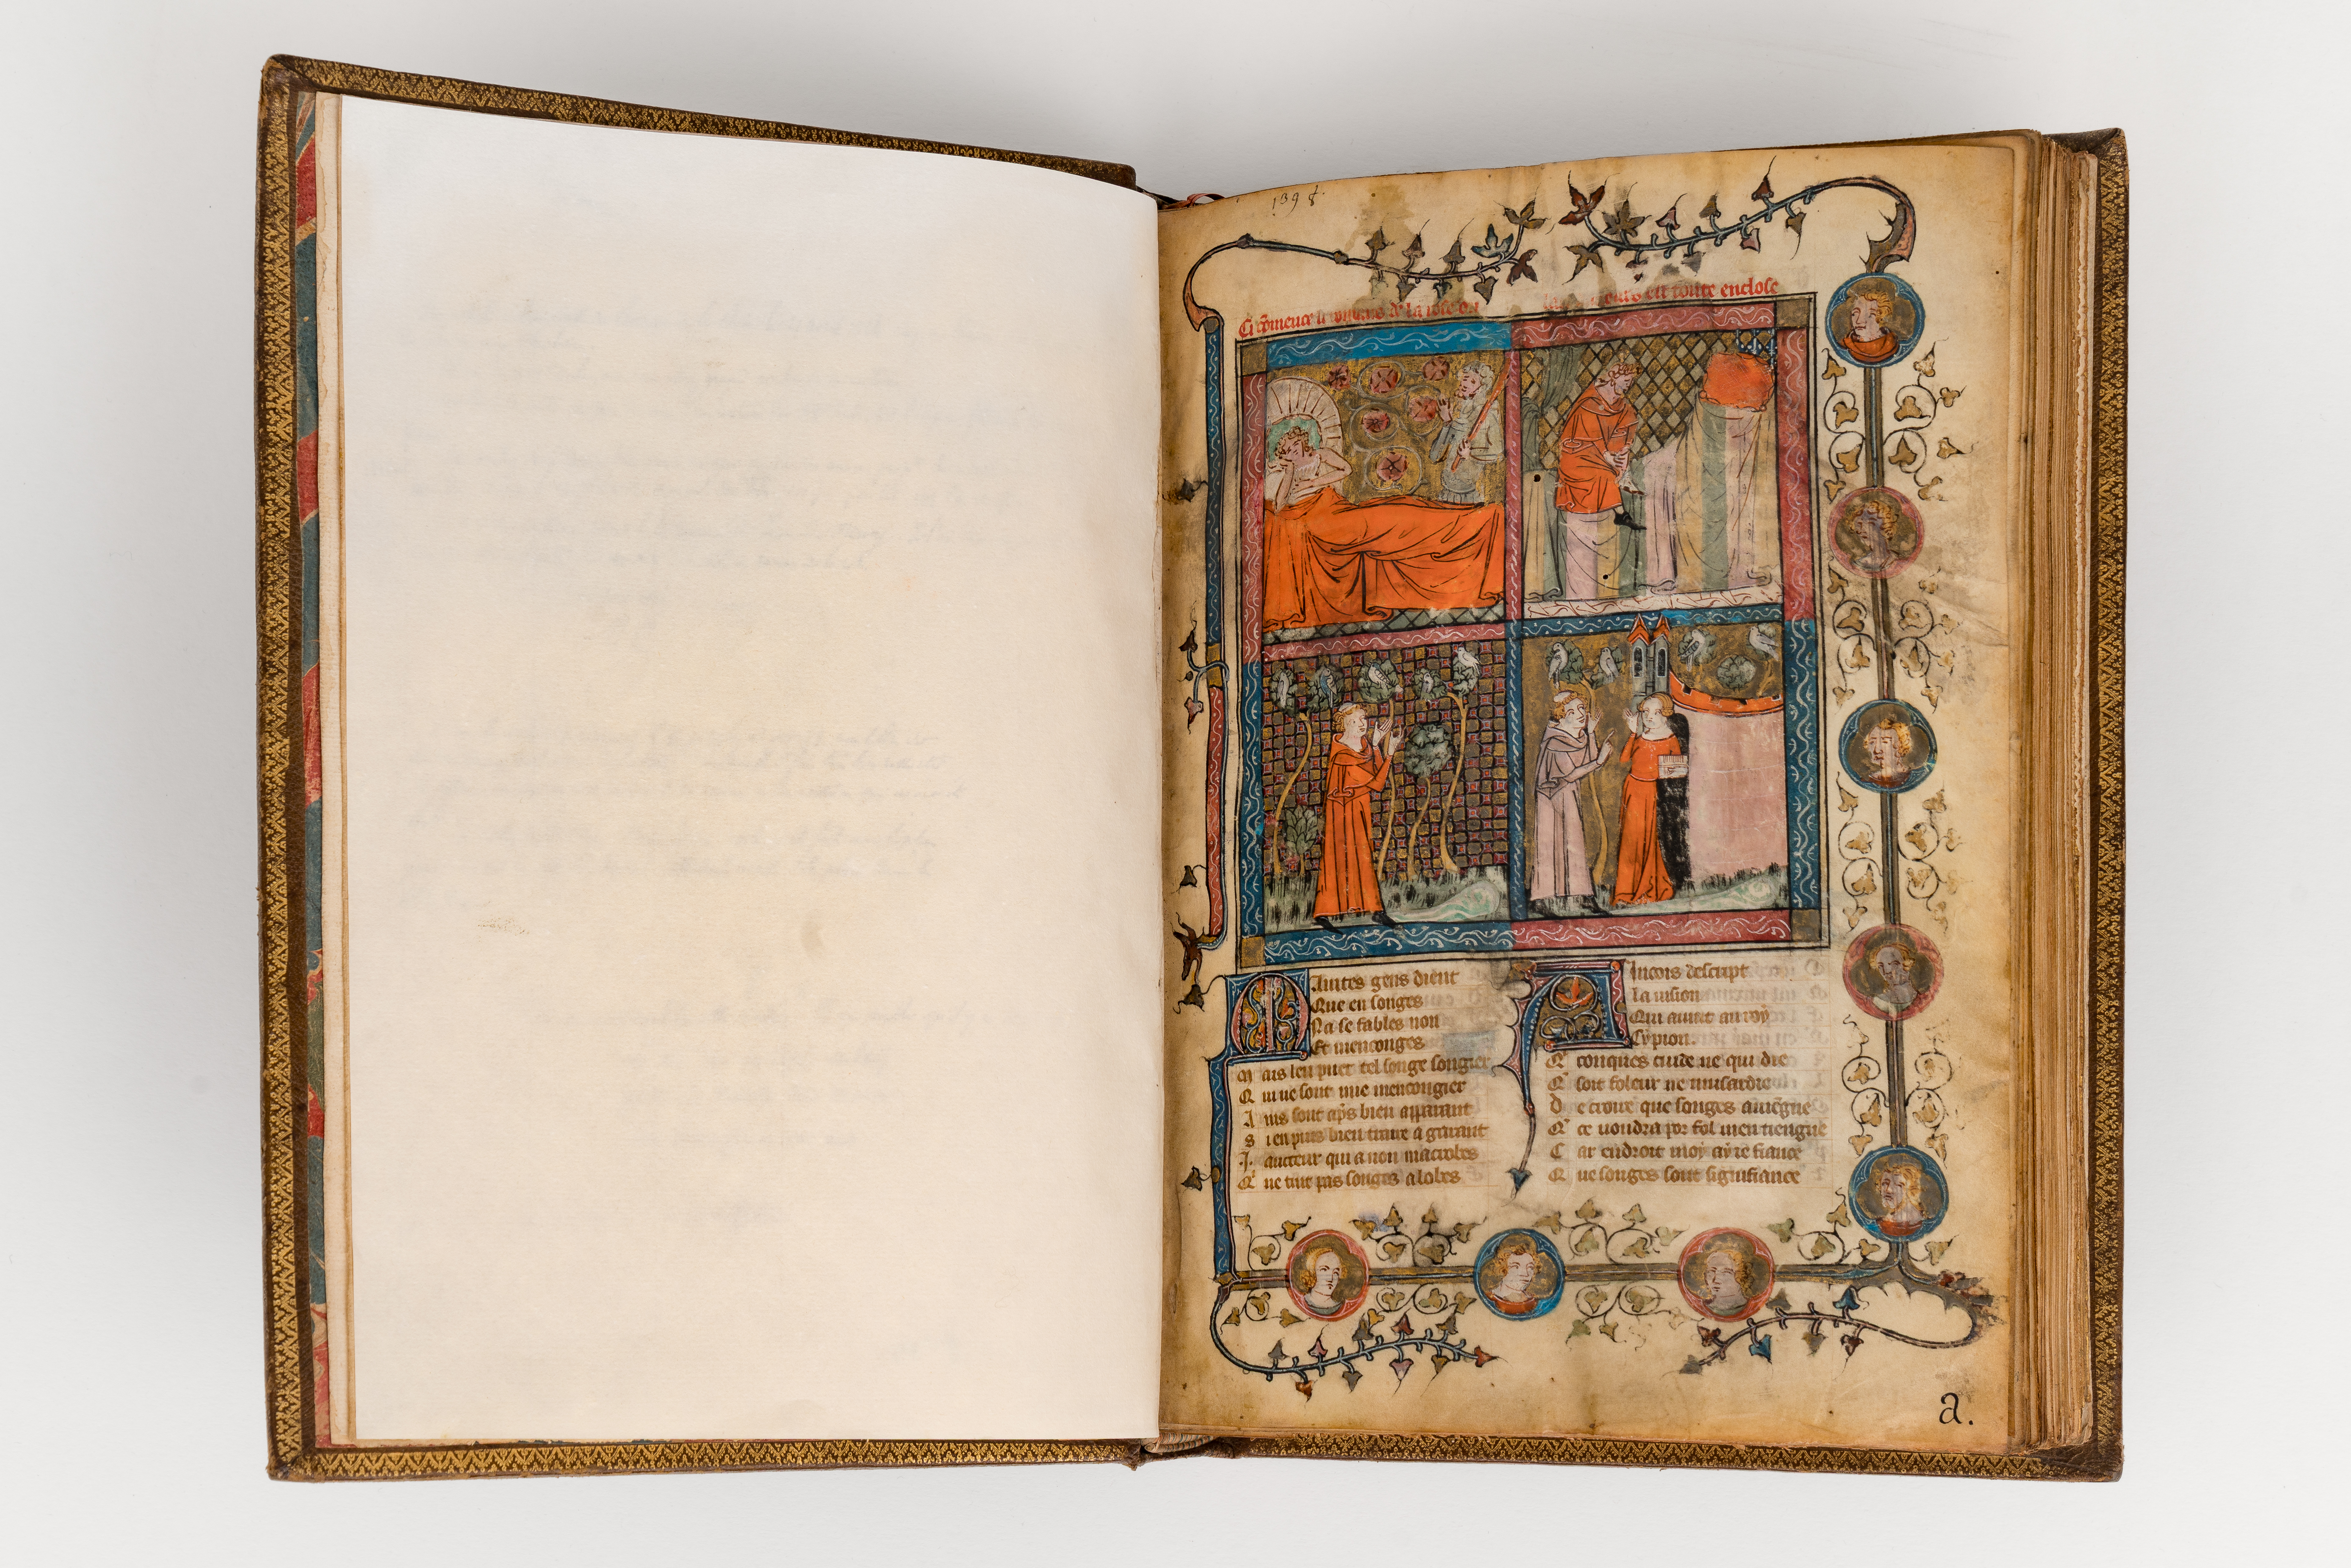 1398
Ci co̅mence li de la rose ou
est toute enclose
Maintes gens dient
Que en songes
Na se fables non
Et menconges
Mais len puet tel songe songier
Qui ne sont mie mencongier
Ains sont ap̅s bien apparant
Si en puis bien traire a garant
I. aucteur qui a non macrobes
Q̓ ne tint pas songes a lobes
Aincois descript
la vision
Qui avint au roy
Cypion.
Q̓ conques cuide ne qui die
Q̓ soit foleur ne musardie
De croire que songes aviengne
Q̓ ce voudra por fol men tiengne
Car endroit moy ay ie fiance
Que songes sont signifiance
a.